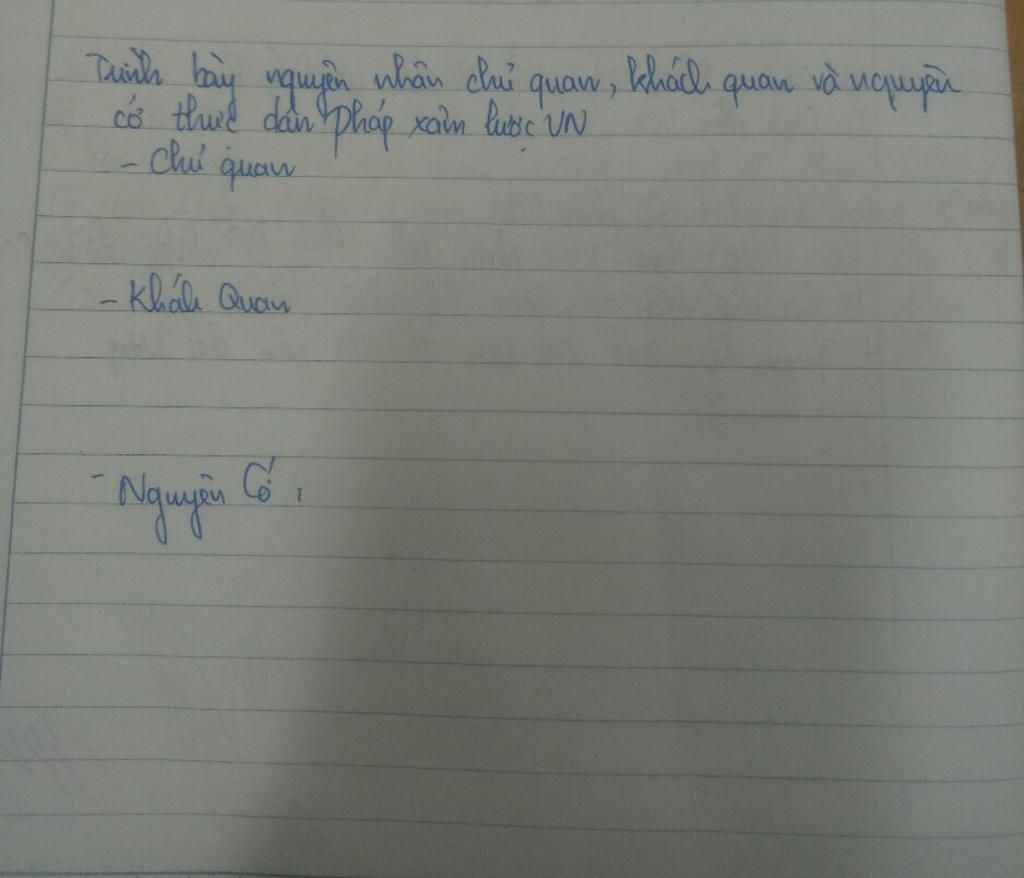 Trình bày nguyên nhân chủ quan, khách quan và nguyên
cớ thực dân Pháp xâm lược VN
- Chủ quan
- Khách Quan
- Nguyên Cớ: